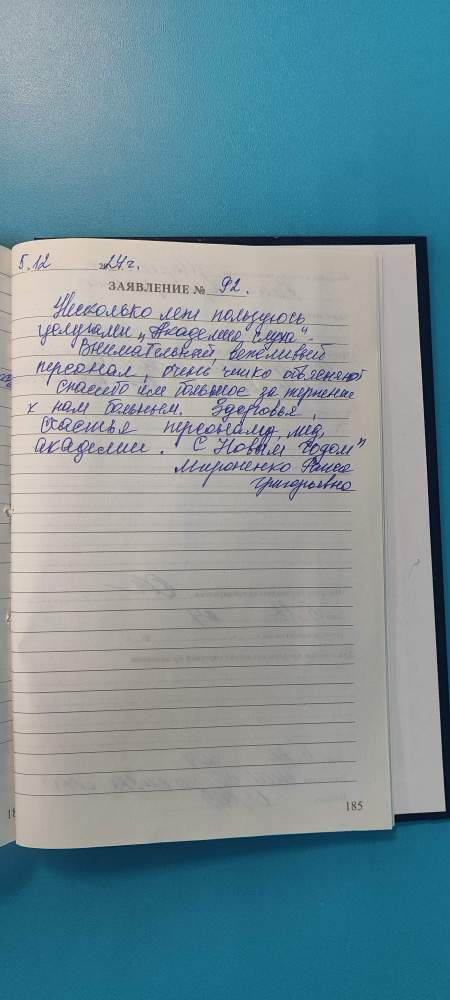 5.12 2024г.
ЗАЯВЛЕНИЕ № 92.
Несколько лет пользуюсь
услугами „Академия слуха".
Внимательный, вежливый
персонал, очень чётко объясняют
Спасибо им большое за терпение
к нам больным. Здоровья,
счастья персоналу мед.
академии. С Новым Годом"
Мироненко Раиса
Григорьевна
185